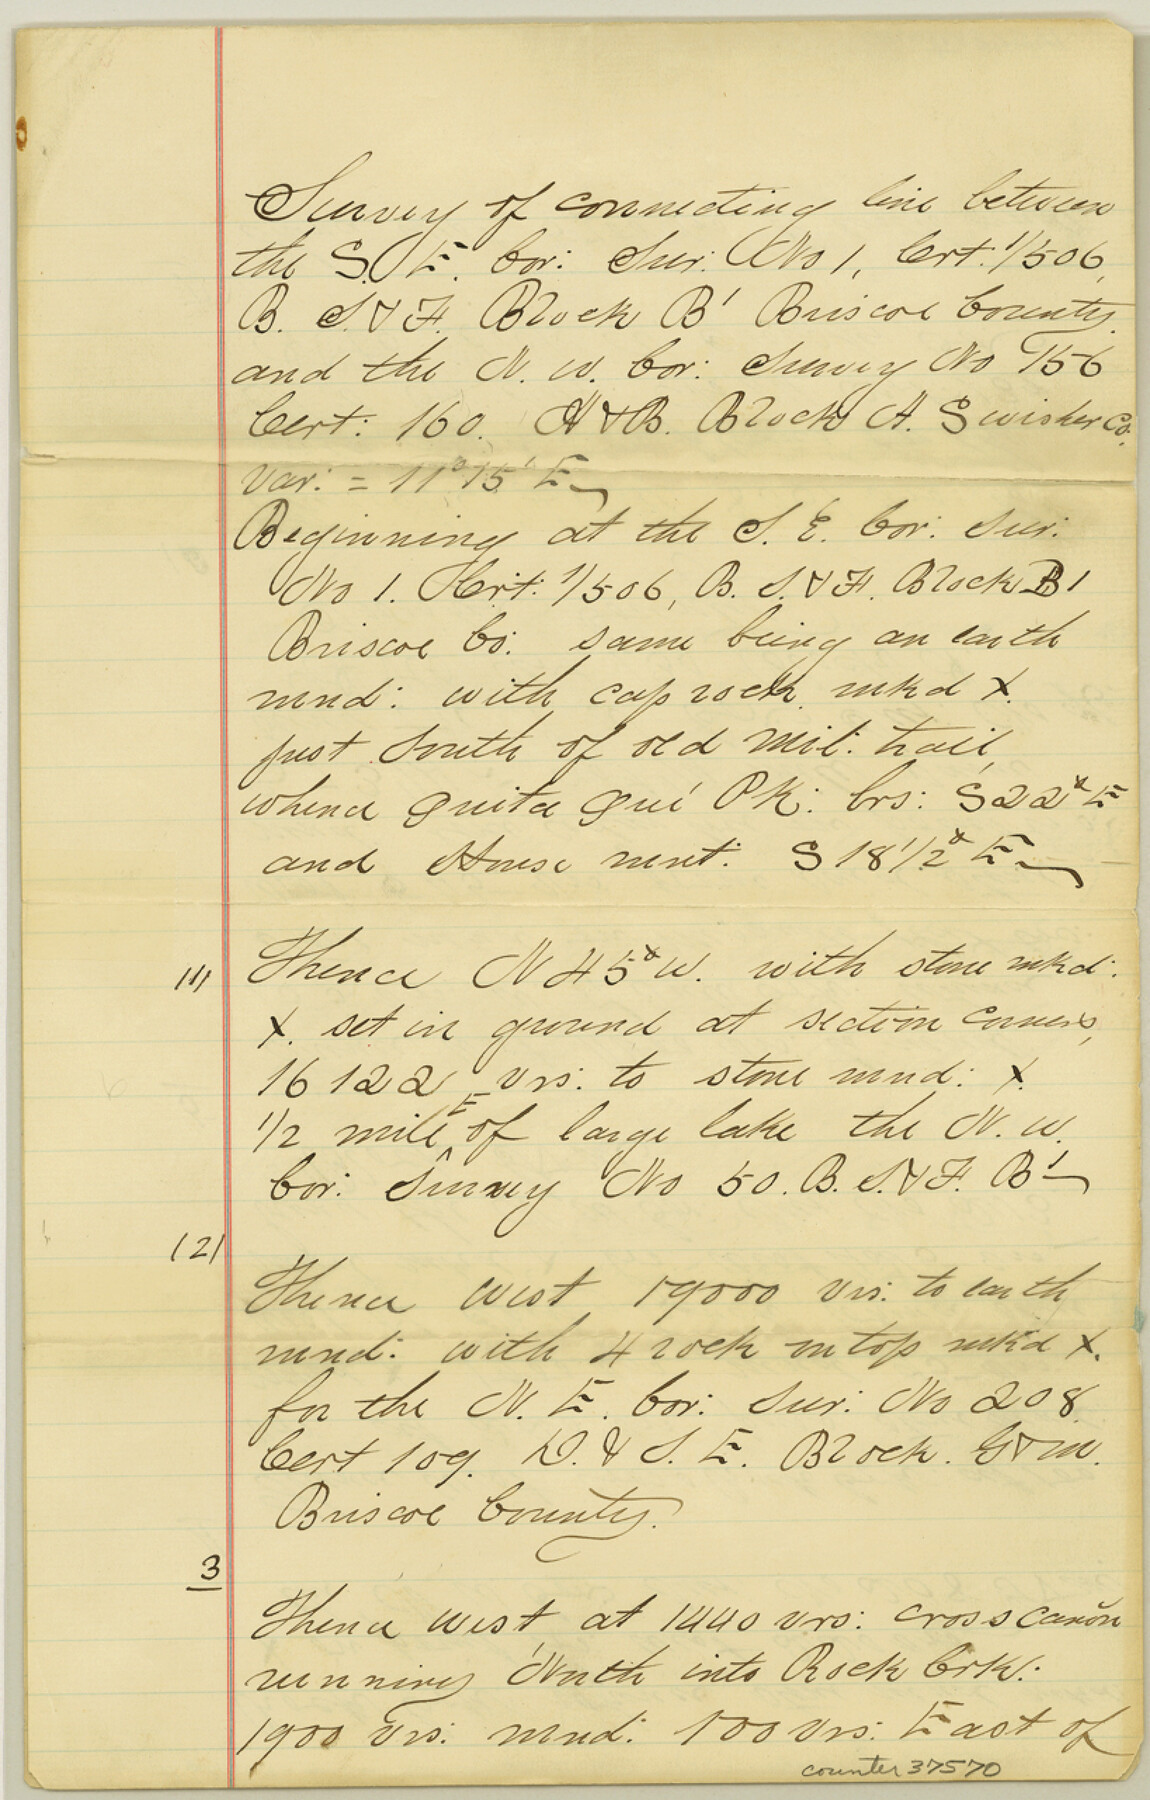 Survey of connecting line between
the S. E. Cor: Sur: No 1, Cert: 1/506,
B. S. & F. Block B' Briscoe County.
and the N. W. Cor: Survey No 156
Cert: 160. H & B. Block A. Swisher Co.
Var: = 11° 15' E
Beginning at the S. E. Cor: Sur:
No 1. Cert: 1/506, B. S. & F. Block B 1
Briscoe Co: same being an earth
mnd: with cap rock mkd X.
just South of old Mil: trail,
whence Quita Que Pk: brs: S 22° E
and House mnt: S 18 1/2° E
(1) Thence N 45° W. with stone mkd:
X. set in ground at section corners,
16122 vrs: to stone mnd: X.
1/2 mile E of large lake the N. W.
Cor: Survey No 50. B. S. & F. B'
(2)
Thence West 19000 vrs: to earth
mnd: with 4 rock on top mk'd X.
for the N. E. Cor: Sur: No 208
Cert 109. D. & S. E. Block. G & M.
Briscoe County.
3
Thence West at 1440 vrs: cross cañon
running North into Rock Crk:
1900 vrs: mnd: 100 vrs: East of
counter 37570